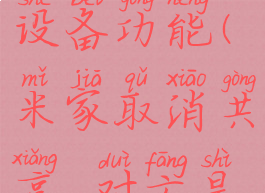 shè bèi gōng néng
设备功能(
mǐ jiā qǔ xiāo gòng
米家取消共
xiǎng duì fāng shì
享 对方是